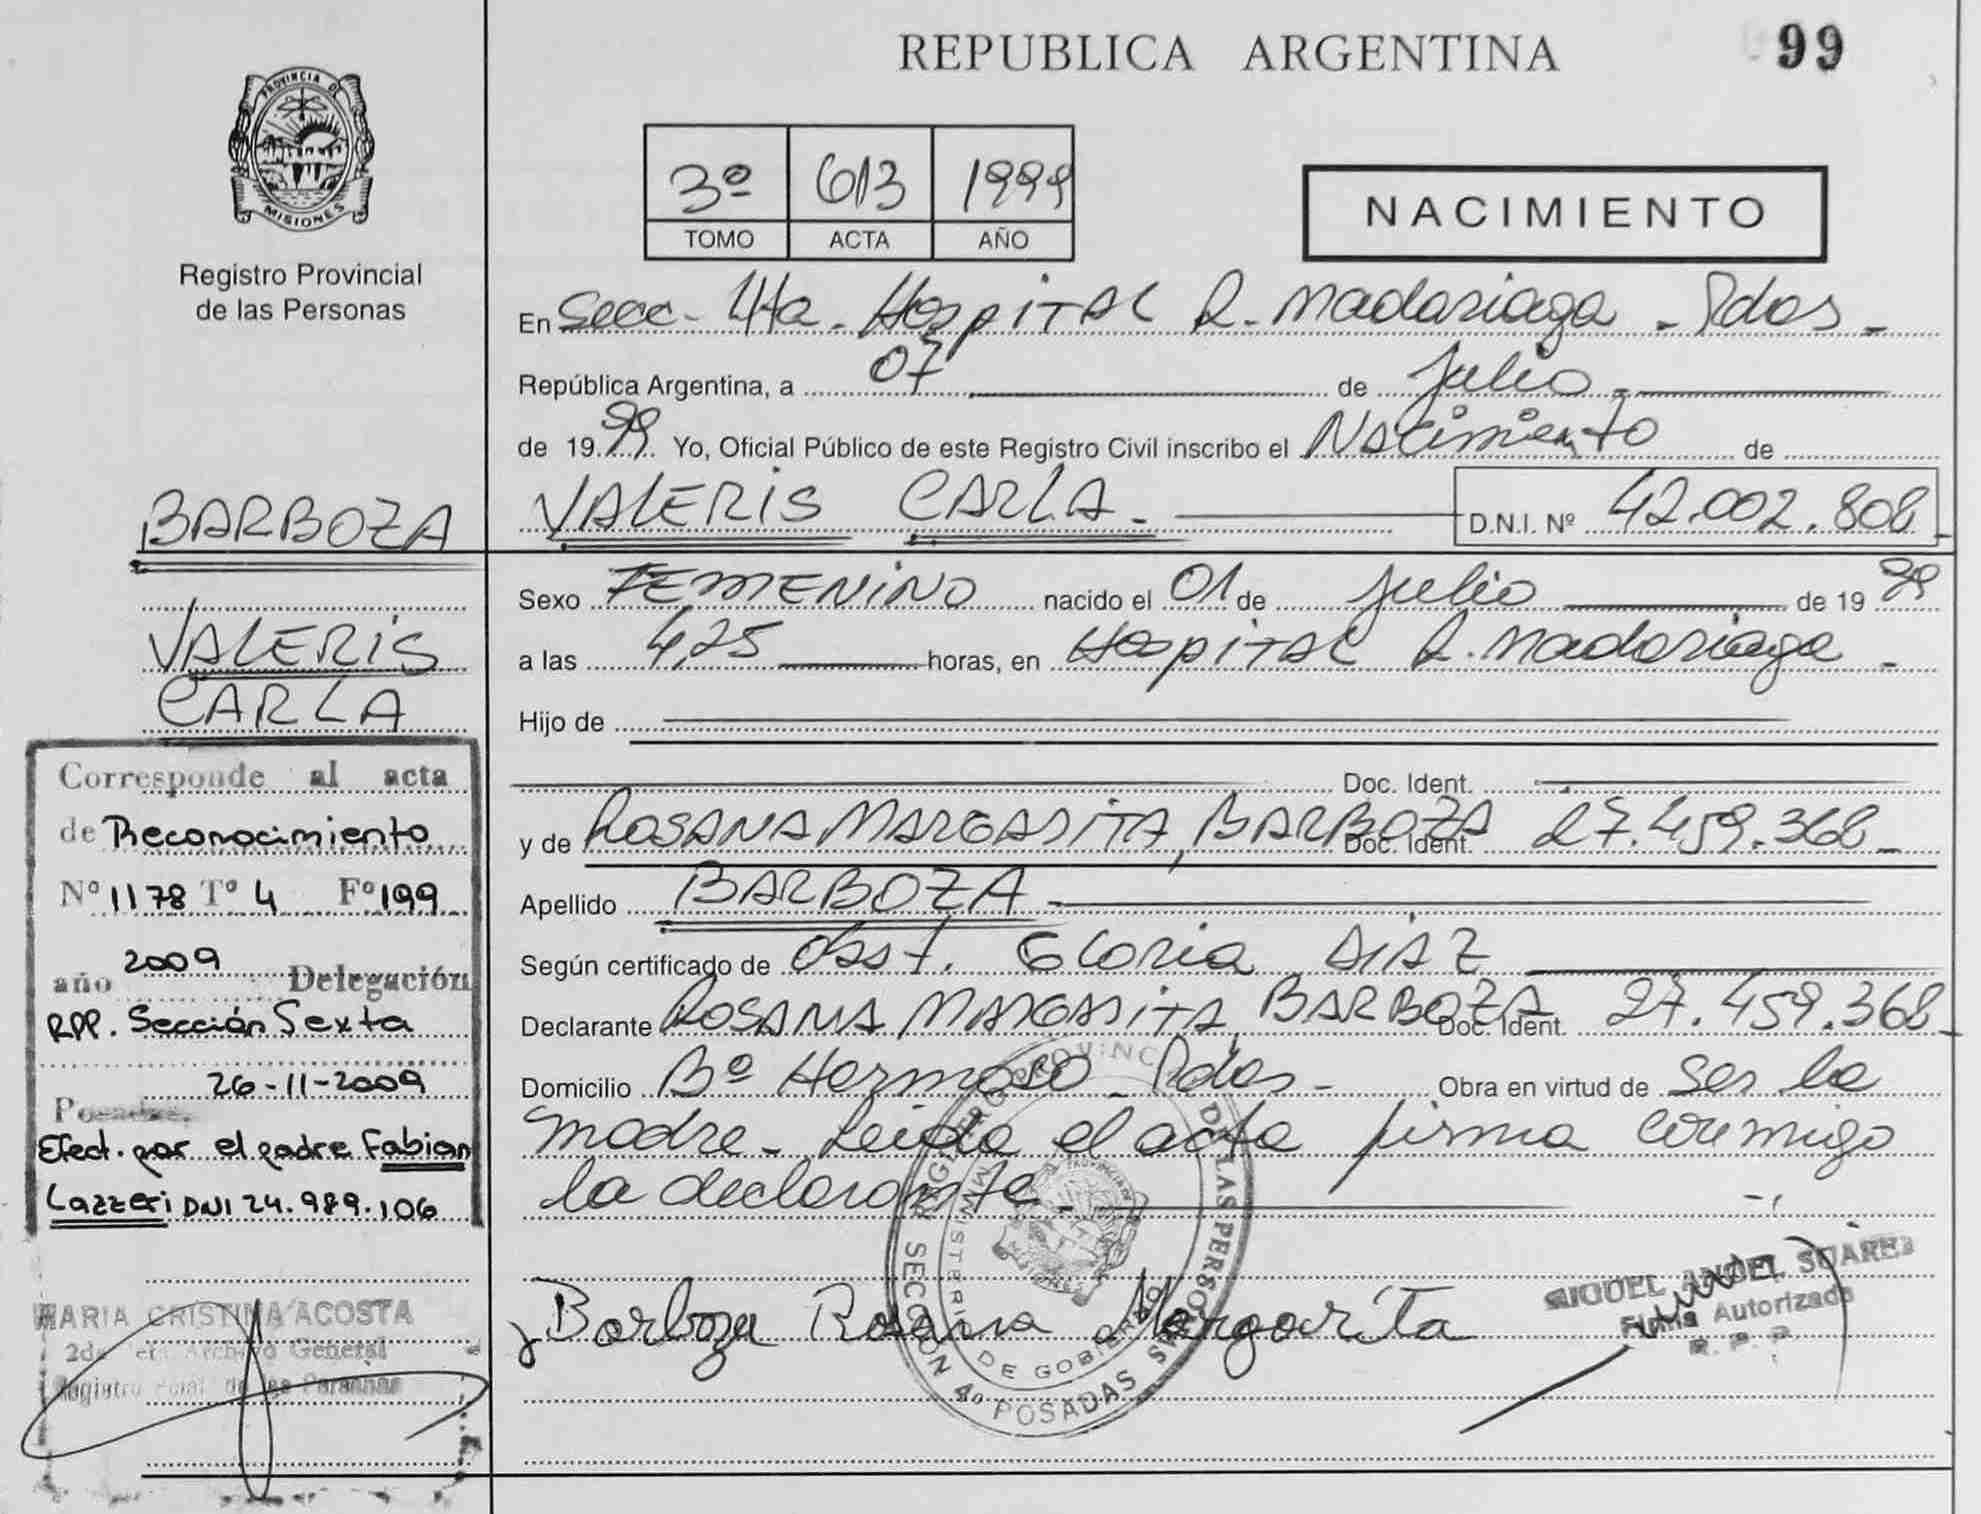 REPUBLICA ARGENTINA
99
PROVINCIA DE
MISIONES
Registro Provincial
de las Personas
3º 613 1999
TOMO ACTA AÑO
NACIMIENTO
En Secc- 4ta. Hospital R. Madariaga - Pdas -
República Argentina, a 07 de Julio
de 1999 Yo, Oficial Público de este Registro Civil inscribo el Nacimiento de
VALERIS CARLA. D.N.I. Nº 42.002.808
Sexo FEMENINO nacido el 01 de Julio de 1999
a las 4,25 horas, en Hospital R. Madariaga -
Hijo de
Doc. Ident.
y de ROSANA MARGARITA, BARBOZA Doc. Ident. 27.459.368
Apellido BARBOZA
Según certificado de Obst. Gloria DIAZ
Declarante ROSANA MARGARITA BARBOZA Doc. Ident. 27.459.368
Domicilio Bº Hermoso - Pdas - Obra en virtud de ser la
madre - Leida el acta firma conmigo
la declarante
Barboza Rosana Margarita
MIGUEL ANGEL SUAREZ
Firma Autorizada
R. P. P.
REGISTRO PROVINC DE LAS PERSONAS
MINISTERIO DE GOBIERNO
SECCIÓN 4º POSADAS
BARBOZA
VALERIS
CARLA
Corresponde al acta
de Reconocimiento
Nº 1178 Tº 4 Fº 199
año 2009 Delegación
RPP. Sección Sexta
26-11-2009
Posadas,
Efect. por el padre Fabian
Lazzeri DNI 24.989.106
MARIA CRISTINA ACOSTA
Archivo General
Registro de las Personas